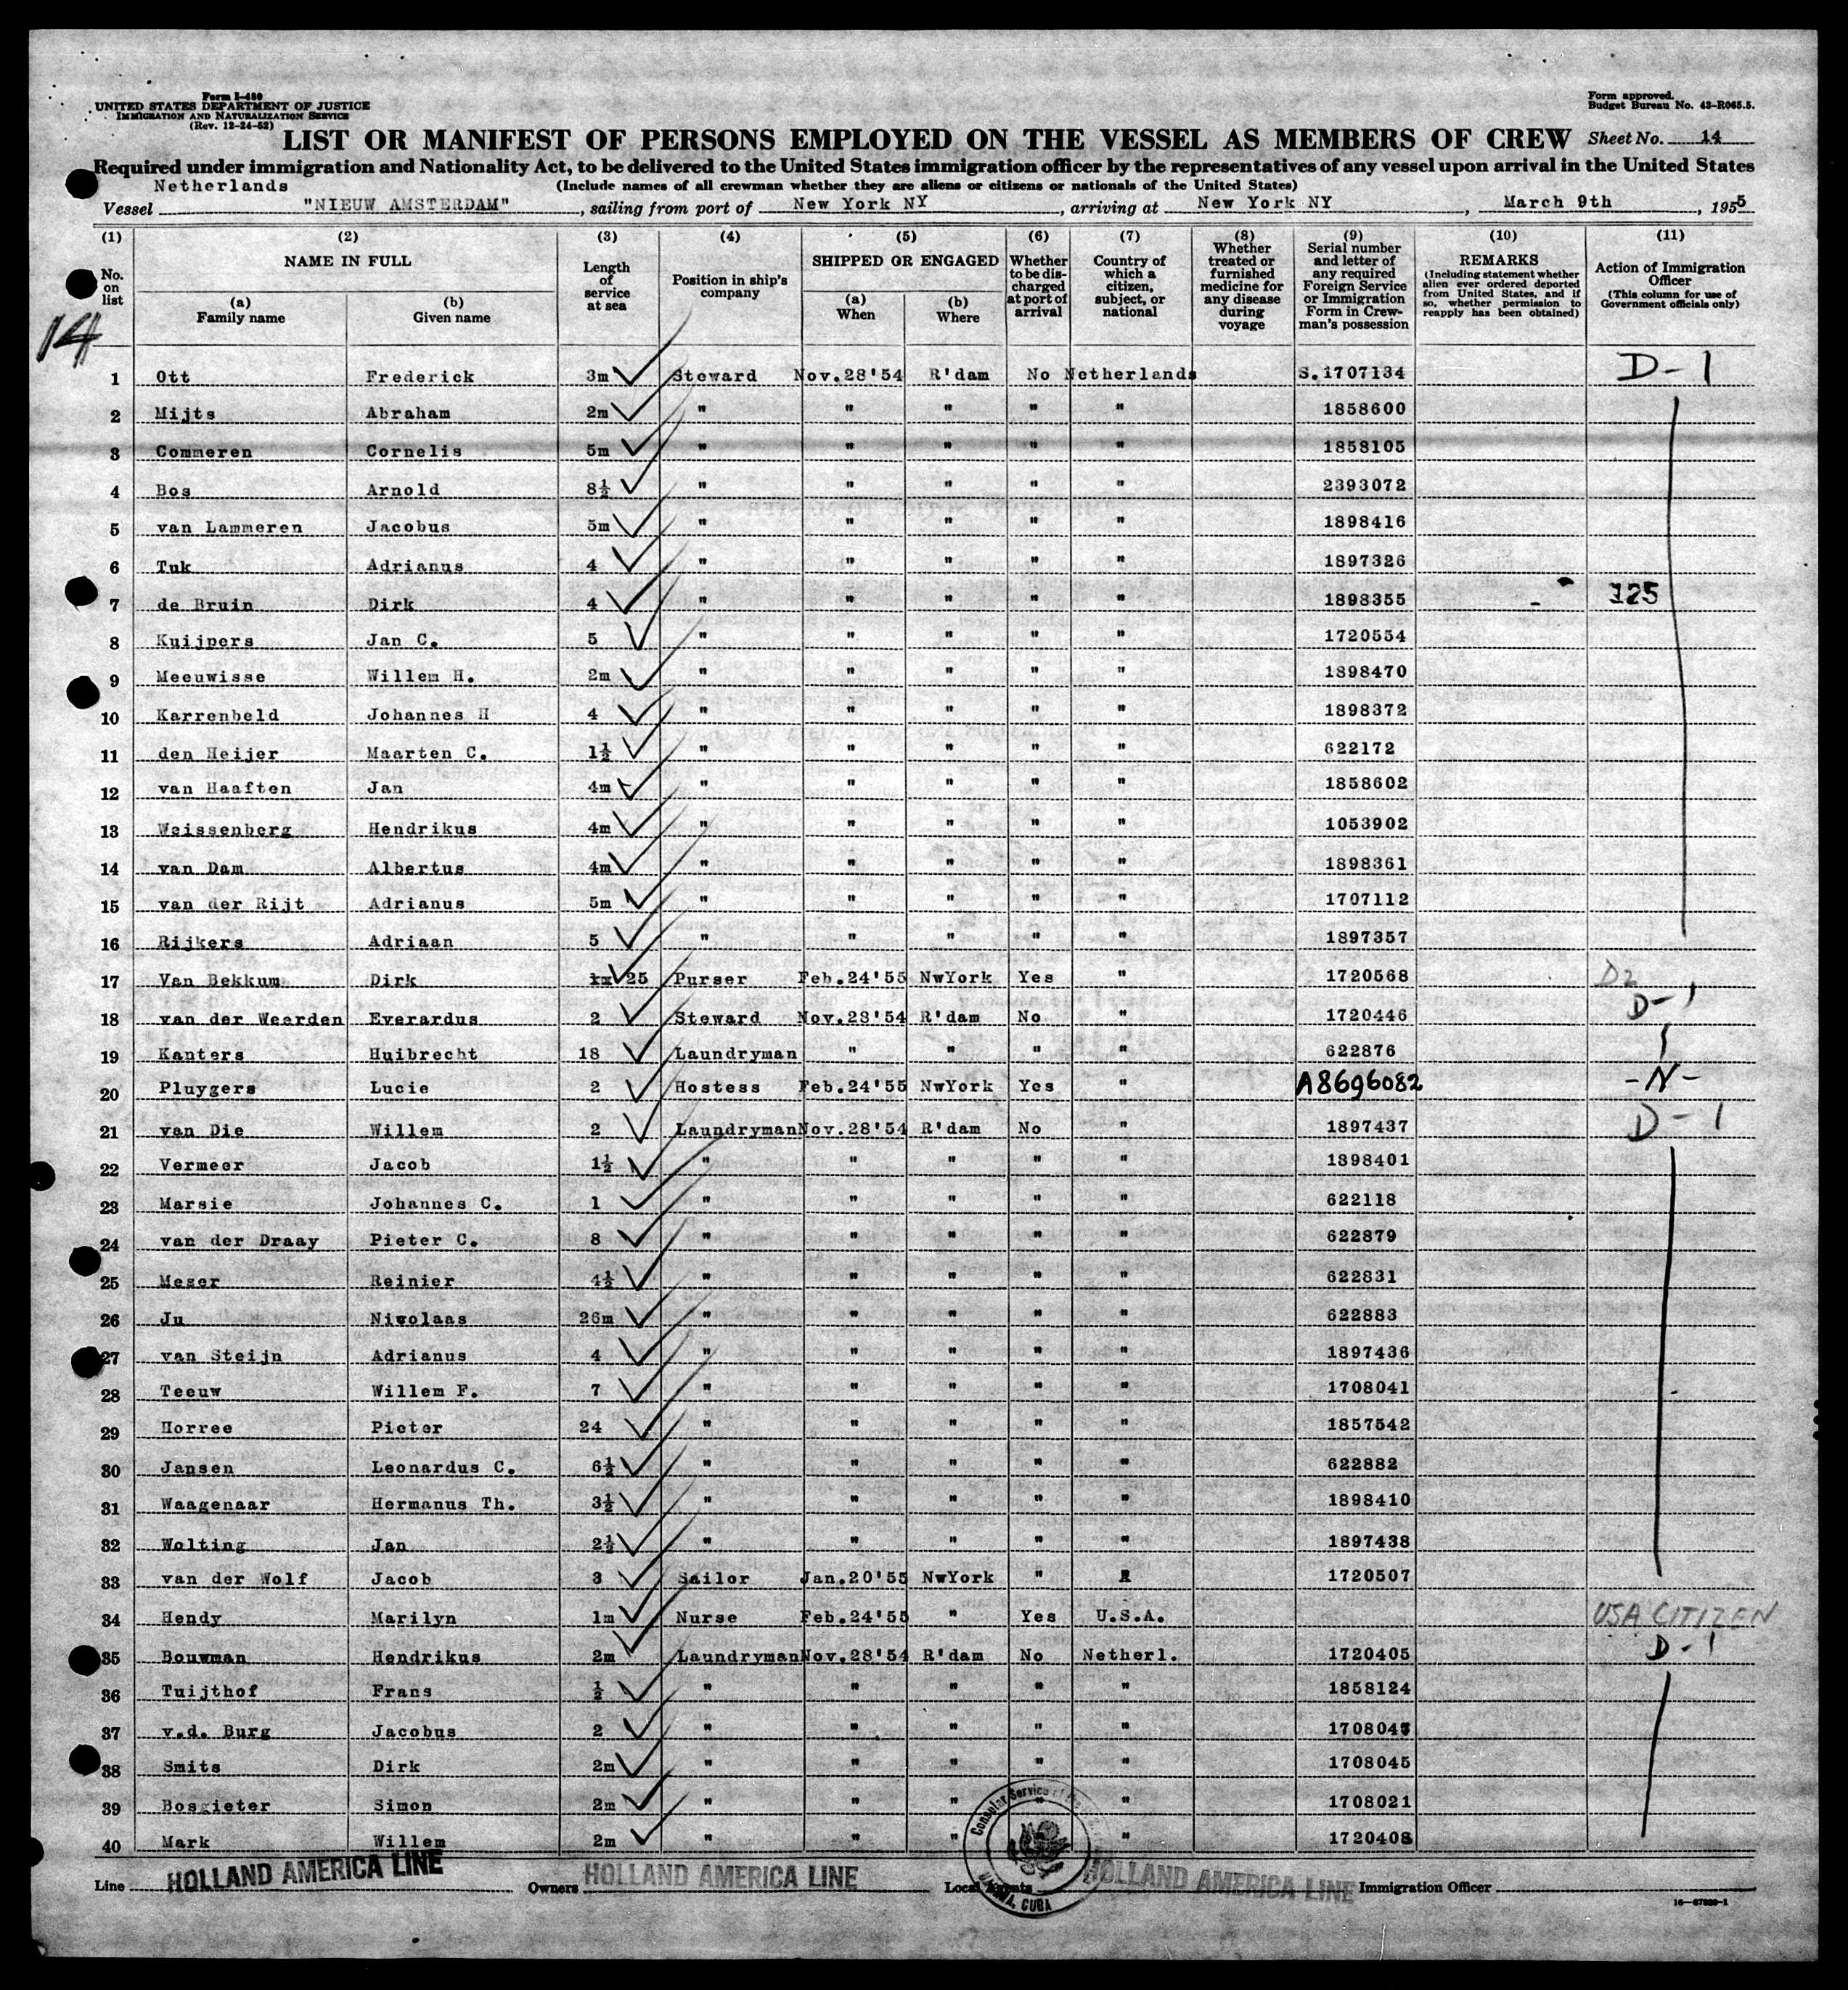 Form I-480
UNITED STATES DEPARTMENT OF JUSTICE
IMMIGRATION AND NATURALIZATION SERVICE
(Rev. 12-24-52)
Form approved.
Budget Bureau No. 43-R065.5.
LIST OR MANIFEST OF PERSONS EMPLOYED ON THE VESSEL AS MEMBERS OF CREW Sheet No. 14
Required under immigration and Nationality Act, to be delivered to the United States immigration officer by the representatives of any vessel upon arrival in the United States
Netherlands (Include names of all crewman whether they are aliens or citizens or nationals of the United States)
Vessel "NIEUW AMSTERDAM", sailing from port of New York NY, arriving at New York NY, March 9th, 1955
(1) (2) (3) (4) (5) (6) (7) (8) (9) (10) (11)
No. on list
NAME IN FULL
(a) Family name
(b) Given name
Length of service at sea
Position in ship's company
SHIPPED OR ENGAGED
(a) When
(b) Where
Whether to be discharged at port of arrival
Country of which a citizen, subject, or national
Whether treated or furnished medicine for any disease during voyage
Serial number and letter of any required Foreign Service or Immigration Form in Crewman's possession
REMARKS
(Including statement whether alien ever ordered deported from United States, and if so, whether permission to reapply has been obtained)
Action of Immigration Officer
(This column for use of Government officials only)
14
1 Ott Frederick 3m Steward Nov.28'54 R'dam No Netherlands S.1707134 D-1
2 Mijts Abraham 2m " " " " " 1858600
3 Commeren Cornelis 5m " " " " " 1858105
4 Bos Arnold 8½ " " " " " 2393072
5 van Lammeren Jacobus 5m " " " " " 1898416
6 Tuk Adrianus 4 " " " " " 1897326
7 de Bruin Dirk 4 " " " " " 1898355 125
8 Kuijpers Jan C. 5 " " " " " 1720554
9 Meeuwisse Willem H. 2m " " " " " 1898470
10 Karrenbeld Johannes H 4 " " " " " 1898372
11 den Heijer Maarten C. 1½ " " " " " 622172
12 van Haaften Jan 4m " " " " " 1858602
13 Weissenberg Hendrikus 4m " " " " " 1053902
14 van Dam Albertus 4m " " " " " 1898361
15 van der Rijt Adrianus 5m " " " " " 1707112
16 Rijkers Adriaan 5 " " " " " 1897357
17 Van Bekkum Dirk 25 Purser Feb.24'55 NwYork Yes " 1720568 D2
18 van der Weerden Everardus 2 Steward Nov.28'54 R'dam No " 1720446 D-1
19 Kanters Huibrecht 18 Laundryman " " " " 622876
20 Pluygers Lucie 2 Hostess Feb.24'55 NwYork Yes " A8696082 -N-
21 van Die Willem 2 Laundryman Nov.28'54 R'dam No " 1897437 D-1
22 Vermeer Jacob 1½ " " " " " 1898401
23 Marsie Johannes C. 1 " " " " " 622118
24 van der Draay Pieter C. 8 " " " " " 622879
25 Meser Reinier 4½ " " " " " 622831
26 Ju Nicolaas 26m " " " " " 622883
27 van Steijn Adrianus 4 " " " " " 1897436
28 Teeuw Willem F. 7 " " " " " 1708041
29 Horree Pieter 24 " " " " " 1857542
30 Jansen Leonardus C. 6½ " " " " " 622882
31 Waagenaar Hermanus Th. 3½ " " " " " 1898410
32 Wolting Jan 2½ " " " " " 1897438
33 van der Wolf Jacob 3 Sailor Jan.20'55 NwYork " 1720507
34 Hendy Marilyn 1m Nurse Feb.24'55 " Yes U.S.A. USA CITIZEN
35 Bouwman Hendrikus 2m Laundryman Nov.28'54 R'dam No Netherl. 1720405 D-1
36 Tuijthof Frans ½ " " " " " 1858124
37 v.d. Burg Jacobus 2 " " " " " 1708047
38 Smits Dirk 2m " " " " " 1708045
39 Bosgieter Simon 2m " " " " " 1708021
40 Mark Willem 2m " " " " 1720408
Consular Service of the
CUBA
Line HOLLAND AMERICA LINE Owners HOLLAND AMERICA LINE Local Agents HOLLAND AMERICA LINE Immigration Officer